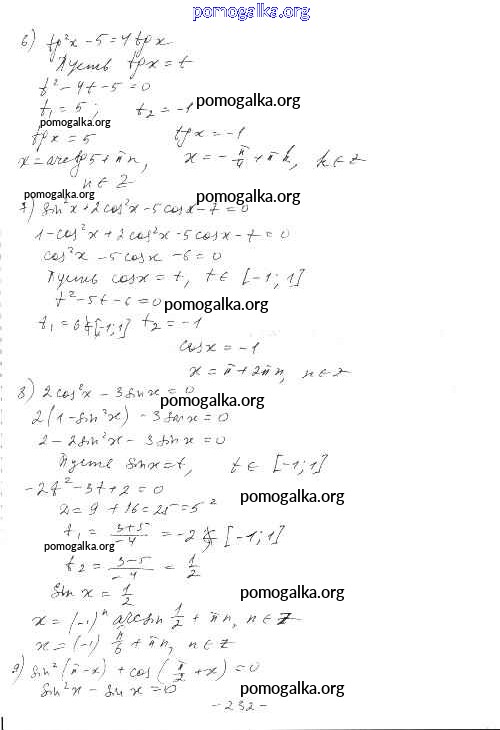 pomogalka.org
6) tg²x - 5 = 4 tg x
Пусть tg x = t
t² - 4t - 5 = 0
t₁ = 5; t₂ = -1 pomogalka.org
pomogalka.org
tg x = 5 tg x = -1
x = arctg 5 + πn, x = -π/4 + πk, k ∈ Z
n ∈ Z
pomogalka.org pomogalka.org
7) sin²x + 2cos²x - 5cosx - 7 = 0
1 - cos²x + 2cos²x - 5cosx - 7 = 0
cos²x - 5cosx - 6 = 0
Пусть cosx = t, t ∈ [-1; 1]
t² - 5t - 6 = 0 pomogalka.org
t₁ = 6 ∉ [-1; 1] t₂ = -1
cosx = -1
x = π + 2πn, n ∈ Z
8) 2cos²x - 3sinx = 0
pomogalka.org
2(1 - sin²x) - 3sinx = 0
2 - 2sin²x - 3sinx = 0
Пусть sinx = t, t ∈ [-1; 1]
-2t² - 3t + 2 = 0
D = 9 + 16 = 25 = 5² pomogalka.org
t₁ = (3+5)/-4 = -2 ∉ [-1; 1]
pomogalka.org
t₂ = (3-5)/-4 = 1/2
sin x = 1/2 pomogalka.org
x = (-1)ⁿ arcsin 1/2 + πn, n ∈ Z
x = (-1) π/6 + πn, n ∈ Z
9) sin²(π - x) + cos(π/2 + x) = 0
sin²x - sin x = 0 pomogalka.org
- 232 -